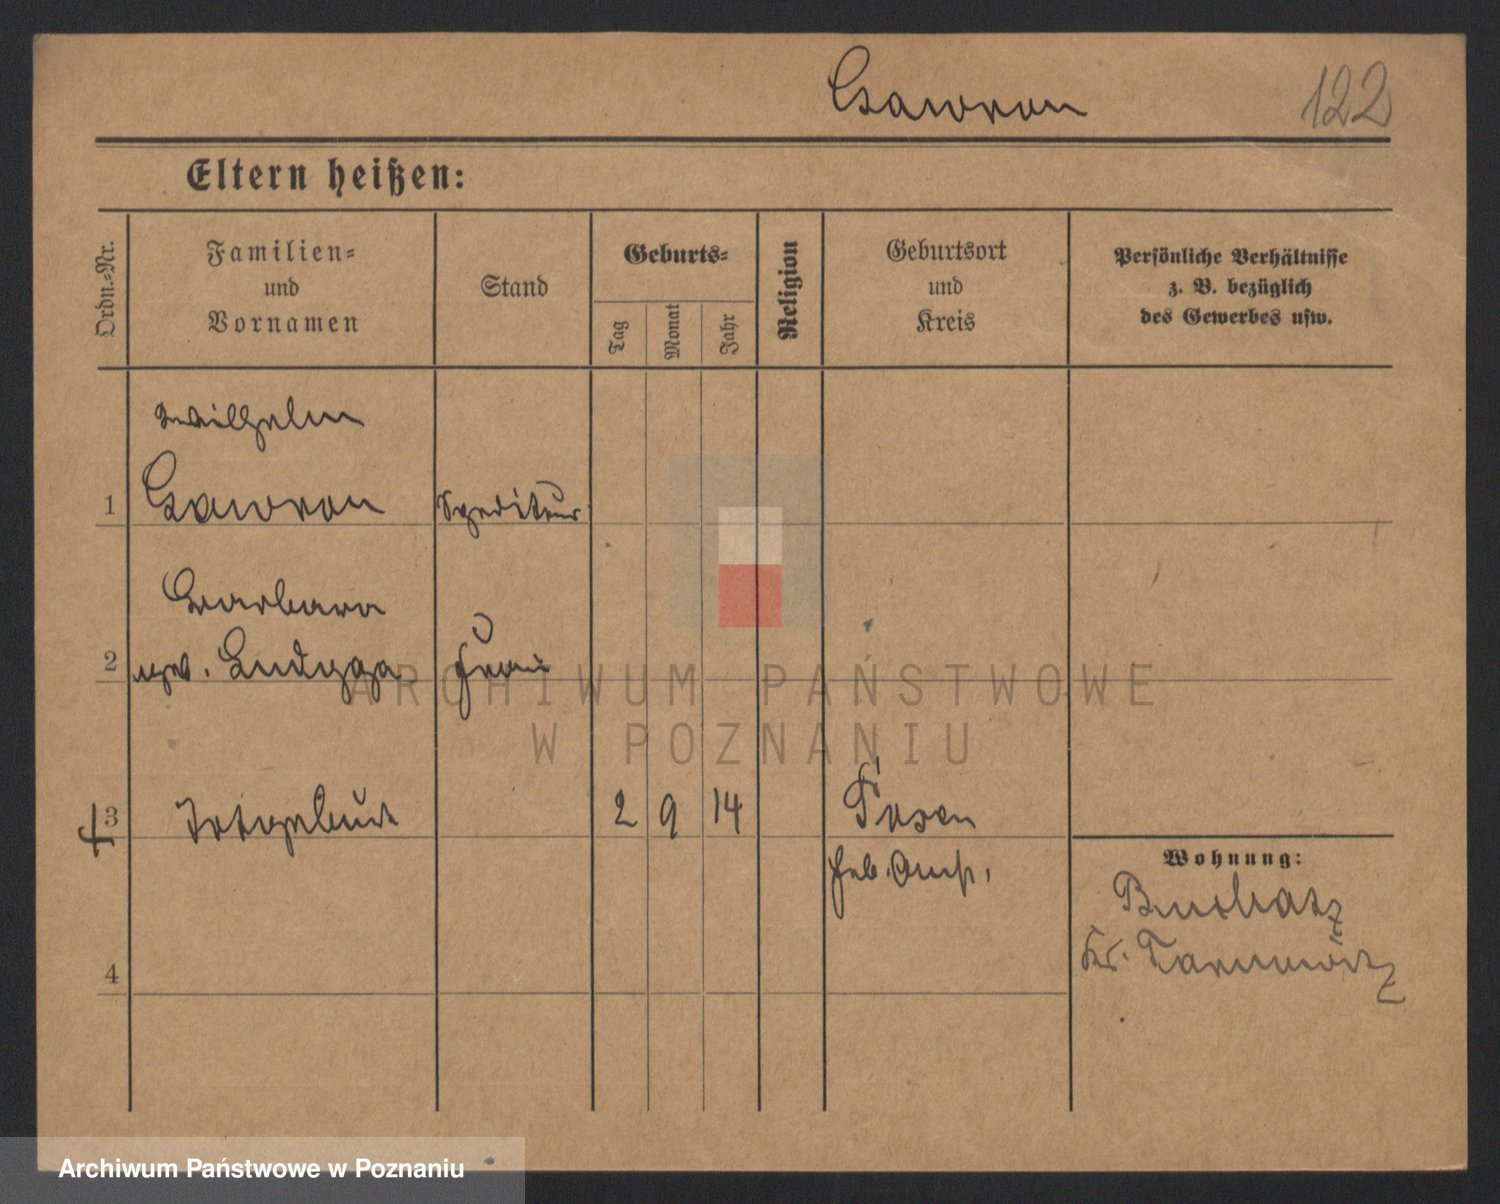 Gawron
122
Eltern heißen:
Ordn.=Nr.
Familien=
und
Vornamen
Stand
Geburts=
Tag
Monat
Jahr
Religion
Geburtsort
und
Kreis
Persönliche Verhältnisse
z. B. bezüglich
des Gewerbes usw.
Wilhelm
1 Gawron Spediteur
Barbara
2 Frau
3 Totgeburt 2 9 14 Posen
Heb. Anst.
Wohnung:
Kr. Tarnowitz
4
ARCHIWUM PAŃSTWOWE
W POZNANIU
Archiwum Państwowe w Poznaniu